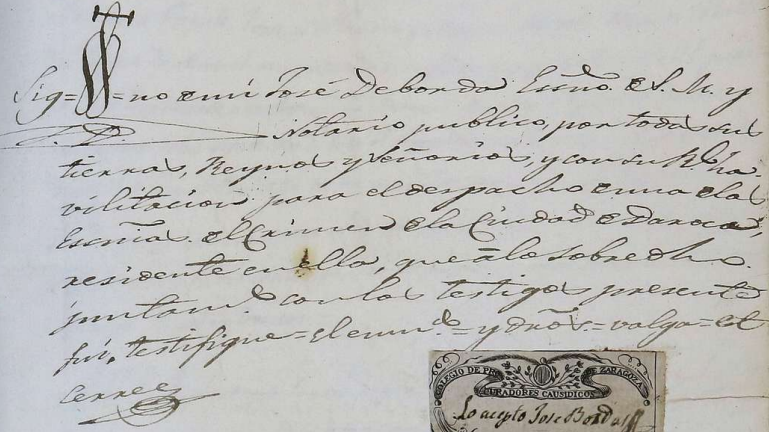 Sig= =no de mi José Deborda Esño. de S. M. y
Notario publico, por todas sus
tierras, Reynos y Señorios, y con su Rl. ha-
vilitacion para el despacho de una de las
Escñia. del Crimen de la Ciudad de Daroca,
residente en ella, que a lo sobredho.
juntamte. con los testigos presente
fui, testifique = el enmdo = y dros = valga = et
Cerree
COLEGIO DE PROCURADORES CAUSIDICOS DE ZARAGOZA
Lo acepto Jose